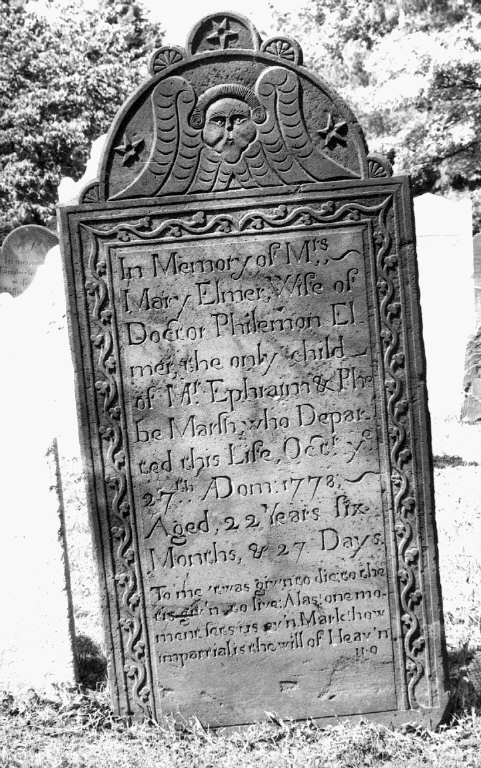 In Memory of Mrs
Mary Elmer, Wife of
Doctor Philemon El
mer, the only child
of Mr Ephraim & Phe
be Marsh, who Depar
ted this Life, Octr. ye
27th ADom: 1778,
Aged, 22 Years six
Months, & 27 Days.
To me 't was giv'n to die: to the
tis giv'n to live: Alas! one mo-
ment sets us ev'n. Mark! how
impartial is the will of Heav'n